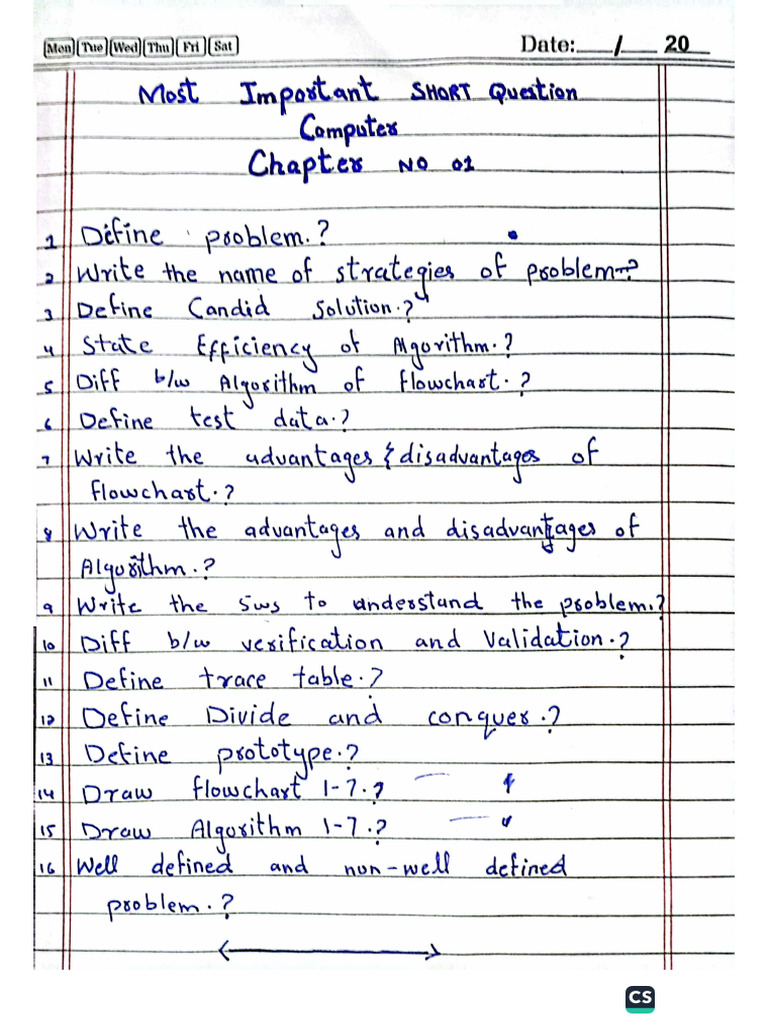 Mon Tue Wed Thu Fri Sat Date: / 20
Most Important SHORT Question
Computer
Chapter NO 01
1 Define problem.?
2 Write the name of strategies of problem?
3 Define Candid Solution.?
4 State Efficiency of Algorithm.?
5 Diff b/w Algorithm of flowchart.?
6 Define test data.?
7 Write the advantages & disadvantages of
flowchart.?
8 Write the advantages and disadvantages of
Algorithm.?
9 Write the 5ws to understand the problem.?
10 Diff b/w verification and Validation.?
11 Define trace table.?
12 Define Divide and conquer.?
13 Define prototype.?
14 Draw flowchart 1-7.?
15 Draw Algorithm 1-7.?
16 Well defined and non-well defined
problem.?
CS